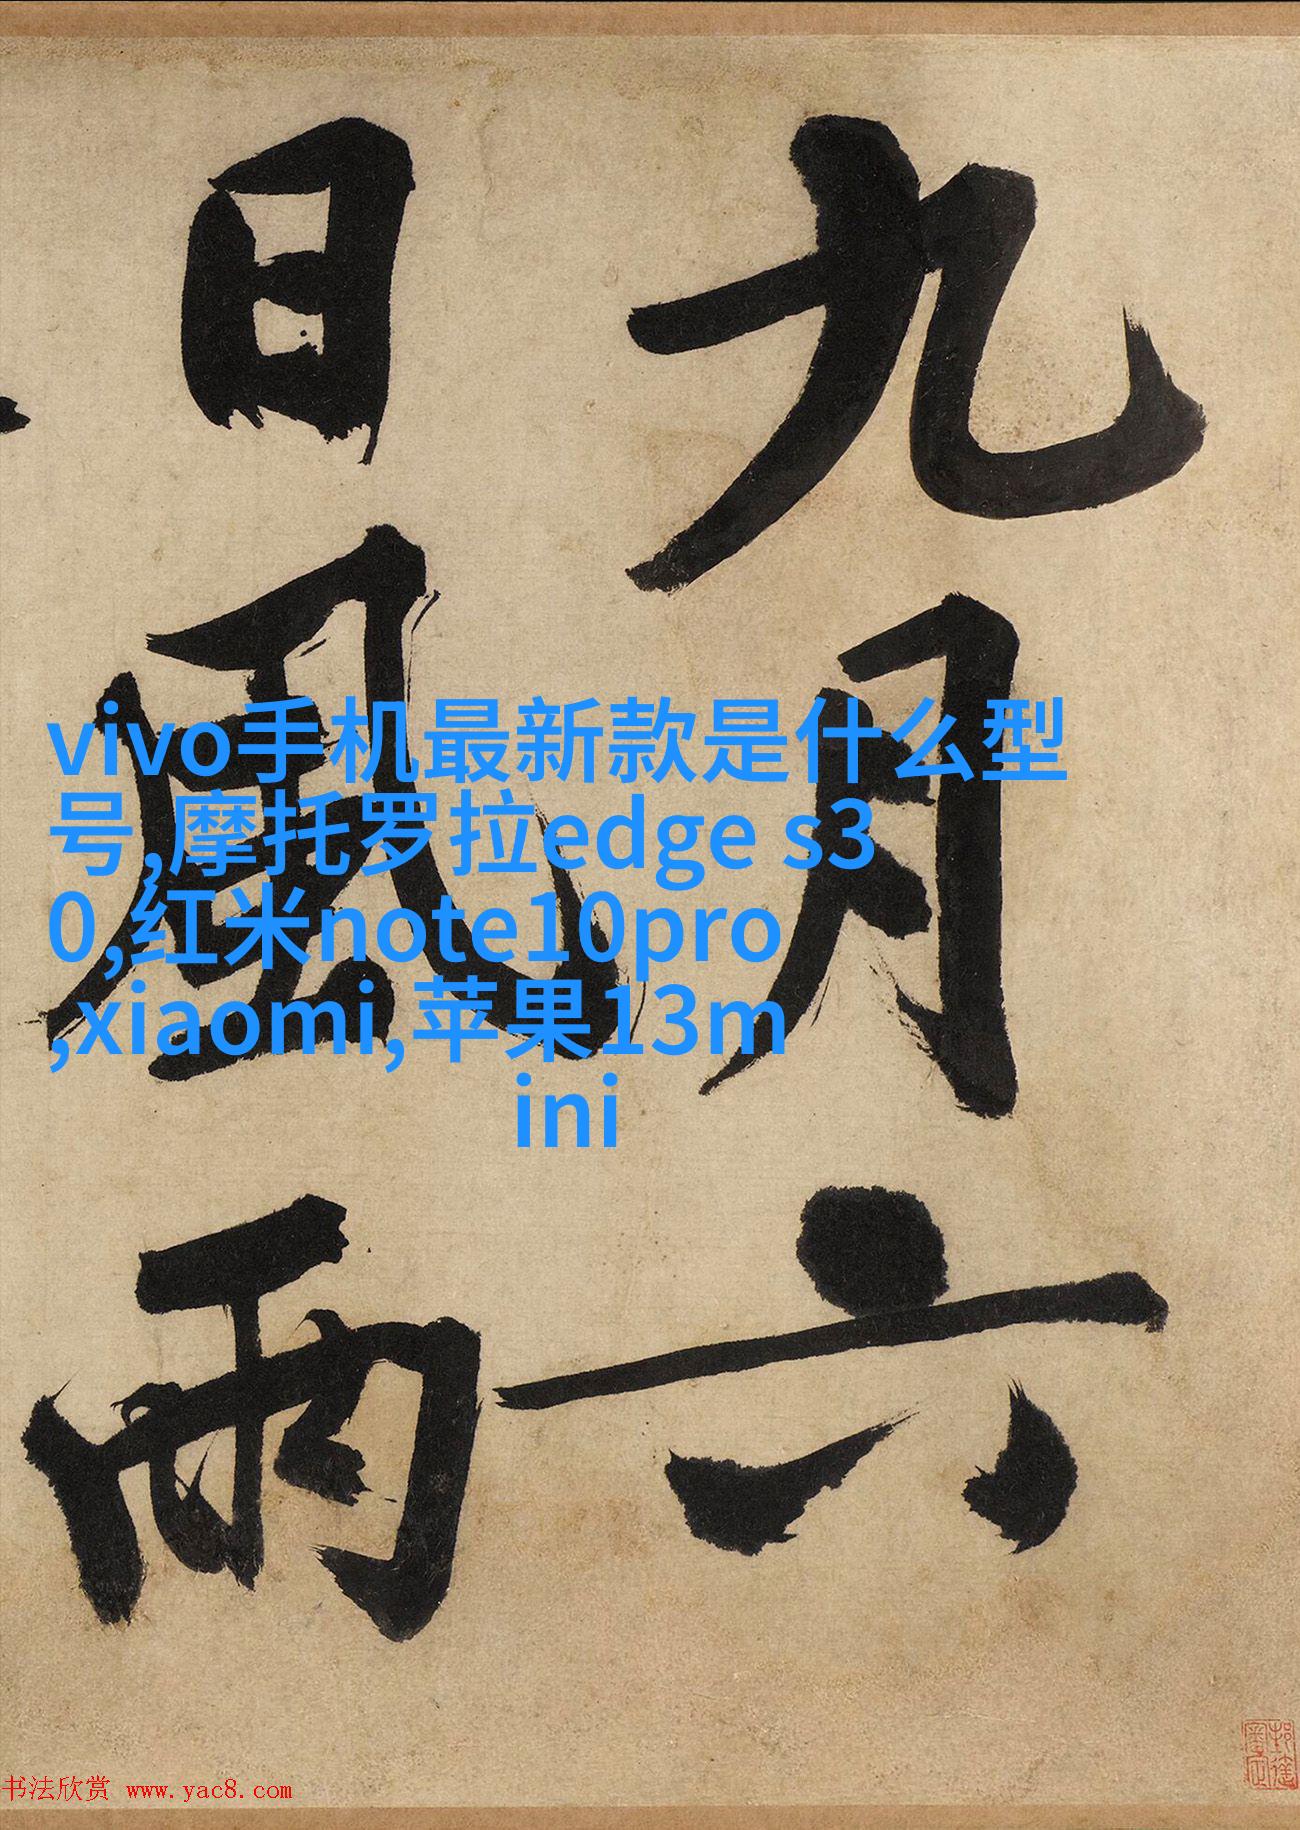 九月六
日風雨
vivo手机最新款是什么型
号,摩托罗拉edge s3
0,红米note10pro
,xiaomi,苹果13m
ini
书法欣赏 www.yac8.com